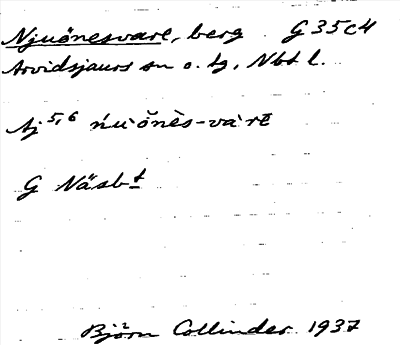 Njuönesvare, berg G35c4
Arvidsjaurs sn o. tg, Nbt l.
Aj 5,6 ńu`ŏnès-va`rē
G Näsbt
Björn Collinder 1937